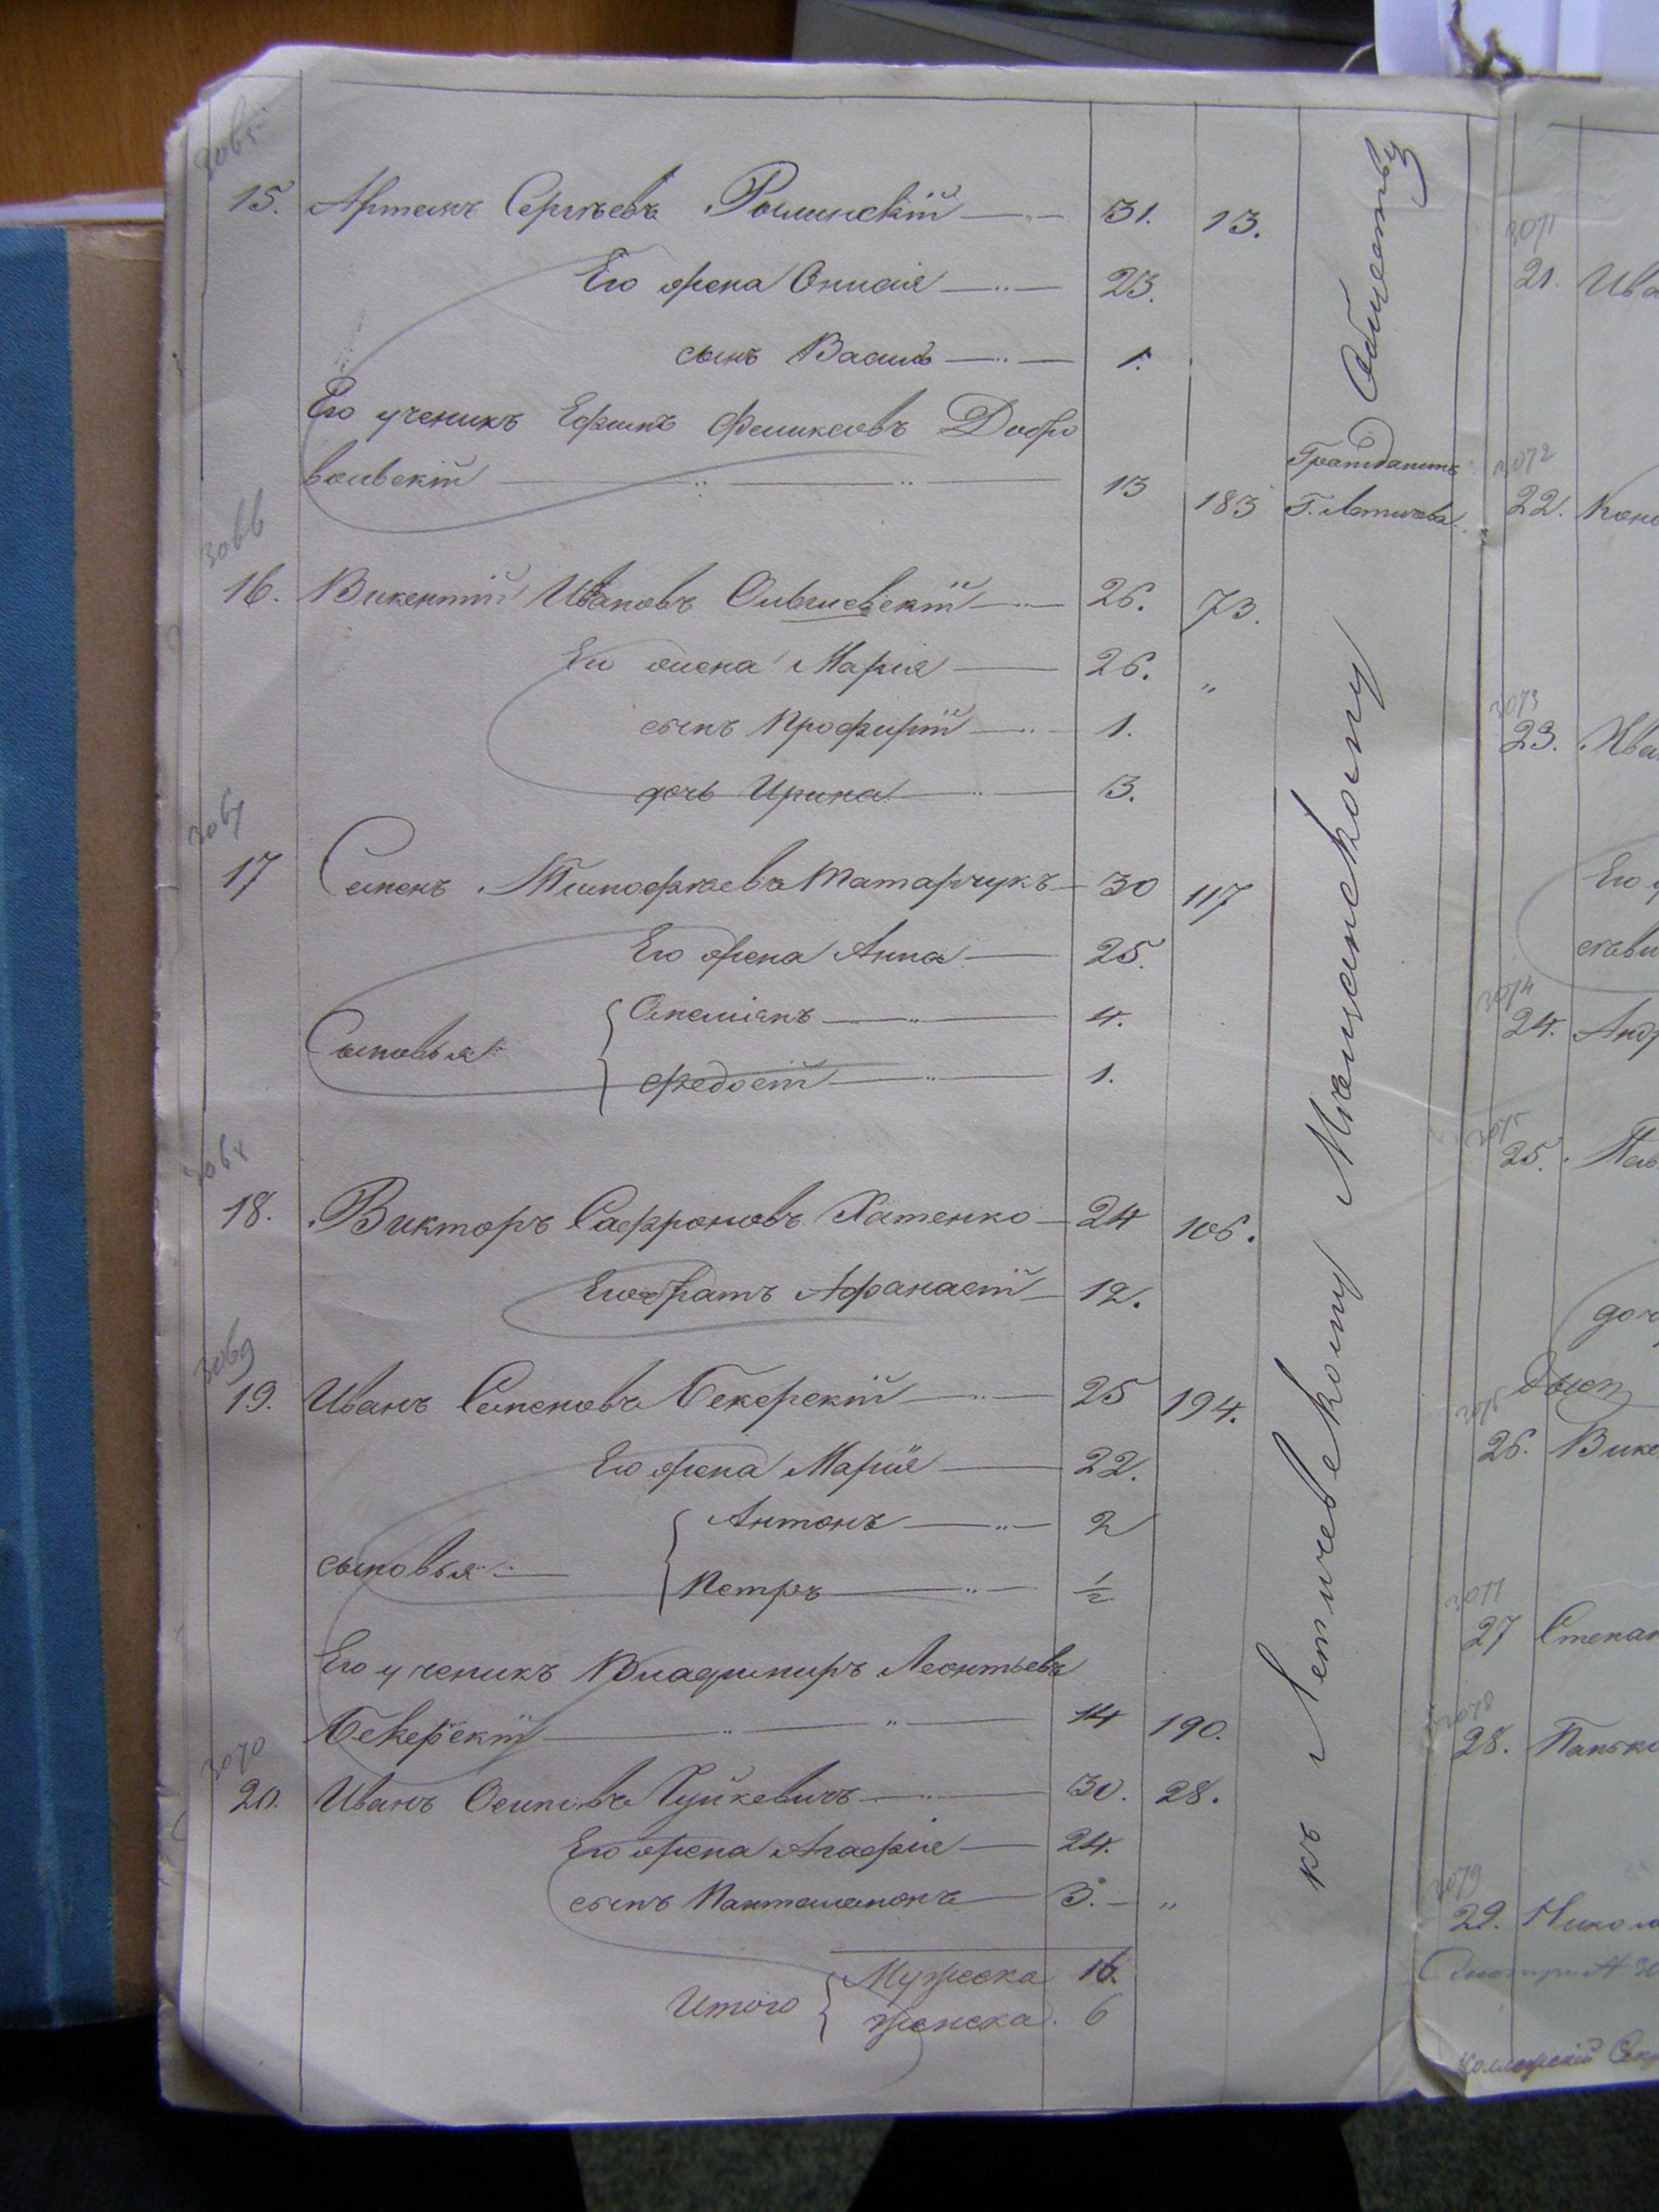 3065
15. Артемъ Сергѣевъ Рошинскій 31. 13.
Его жена Онисія 23.
сынъ Василь 1.
Его ученикъ Ефимъ Феликсовъ Добро
вольскій 13 183 Гражданинъ Г. Летичева
3066
16. Викентій Ивановъ Ольшевскій 26. 73.
Его жена Марія 26. "
сынъ Профирій 1.
дочь Ирина 3.
3067
17 Семенъ Тимофѣевъ Татарчукъ 30 117
Его жена Анна 25.
Сыновья
Омелянъ 4.
Федосій 1.
3068
18. Викторъ Сафроновъ Хатенко 24 106.
Его братъ Афанасій 12.
3069
19. Иванъ Семеновъ Бекерскій 25 194.
Его жена Марія 22.
сыновья
Антонъ 2
Петръ ½
Его ученикъ Владимиръ Леонтьевъ
Бекерскій 14 190.
3070
20. Иванъ Осиповъ Гуйкевичъ 30. 28.
Его жена Агафія 24.
сынъ Пантелемонъ 3. "
Итого
Мужеска 16.
Женска 6
къ Летичевскому Мѣщанскому Обществу
3071
21. Ива
3072
22.
3073
23. Ива
Его у
3074
24. Анд
3075
25.
доч
3076
26. Вике
3077
27 Степан
3078
28. Панько
3079
29. Никол
Коллежскій Сек